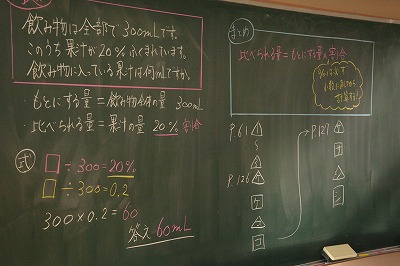 飲み物は全部で300mLです。
このうち果汁が20%ふくまれています。
飲み物に入っている果汁は何mLですか。
・もとにする量=飲み物全体の量 300mL
・比べられる量=果汁の量 20% 割合
式
□÷300=20%
□÷300=0.2
300×0.2=60
答え 60mL
まとめ
比べられる量=もとにする量×割合
%は必ず
小数に直してから
計算する!
P.61
P.126
P.127